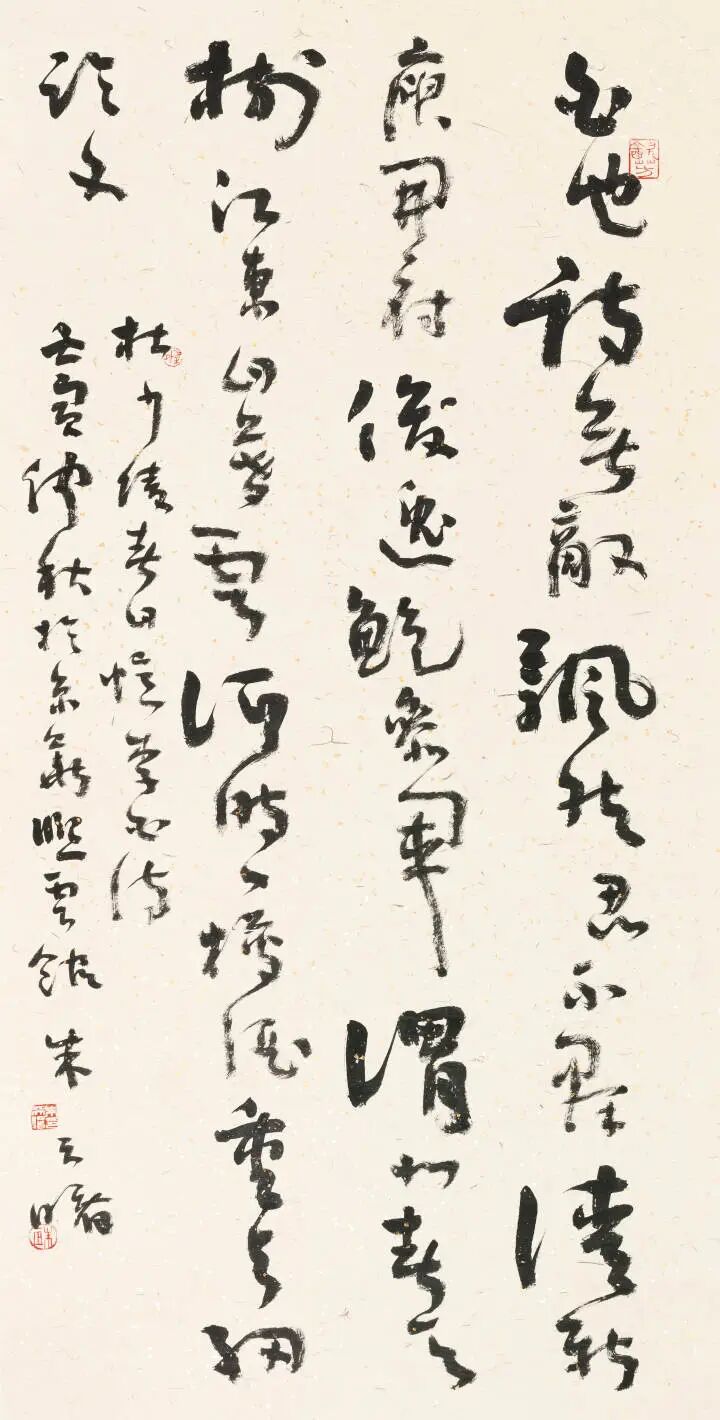 白也詩無敵飄然思不羣清新
庾開府俊逸鮑參軍渭北春天
樹江東日暮雲何時一樽酒重與細
論文
杜少陵春日憶李白詩
壬寅仲秋於京華雲館朱天曙